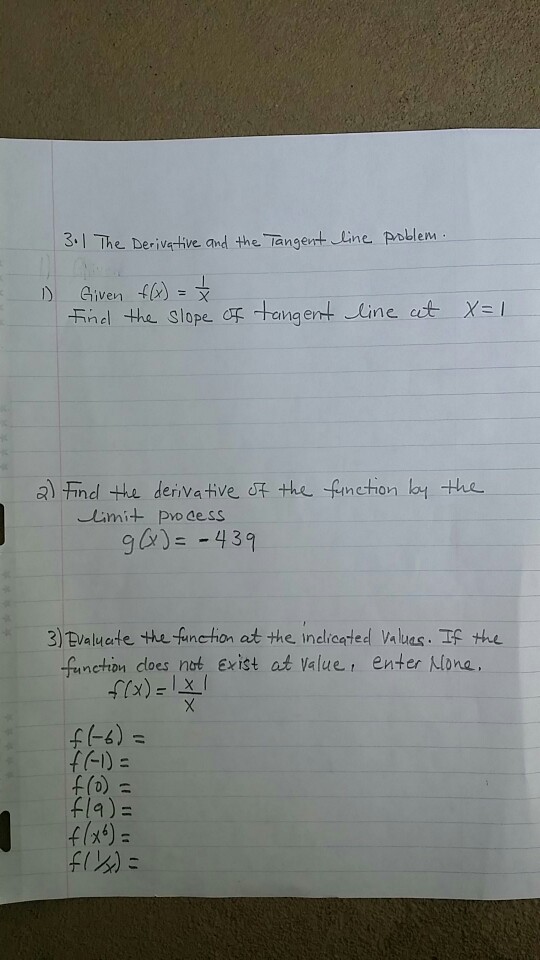 3.1 The Derivative and the Tangent line problem.
1) Given f(x) = 1/x
Find the slope of tangent line at x=1
2) Find the derivative of the function by the
limit process
g(x) = -439
3) Evaluate the function at the indicated values. If the
function does not exist at value, enter None.
f(x) = |x|/x
f(-6) =
f(-1) =
f(0) =
f(9) =
f(x⁶) =
f(1/x) =